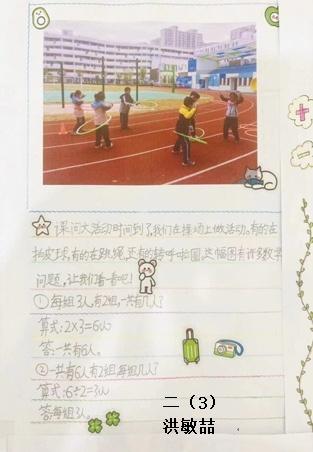 课间大活动时间到了,我们在操场上做活动。有的在
拍皮球,有的在跳绳,还有的转呼啦圈,这幅图有许多数学
问题,让我们看一看吧!
①每组3人,有2组,一共有几人?
算式:2×3=6(人)
答:一共有6人。
②一共有6人,有2组,每组几人?
算式:6÷2=3(人)
答:每组3人。
二(3)
洪敏喆